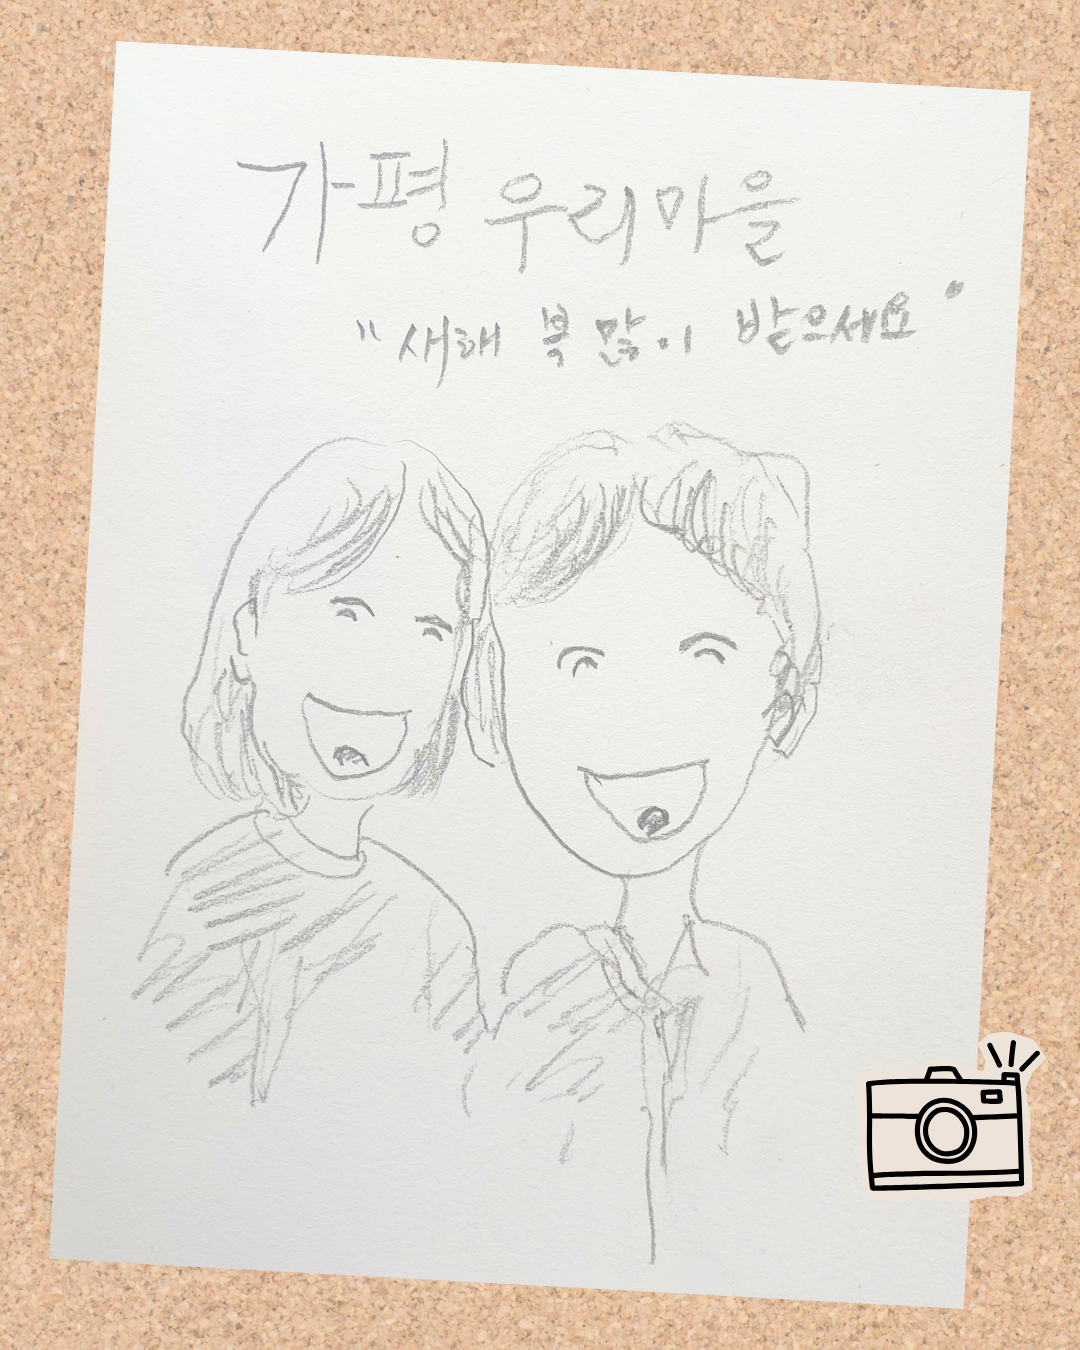 가평 우리마을
"새해 복 많이 받으세요"